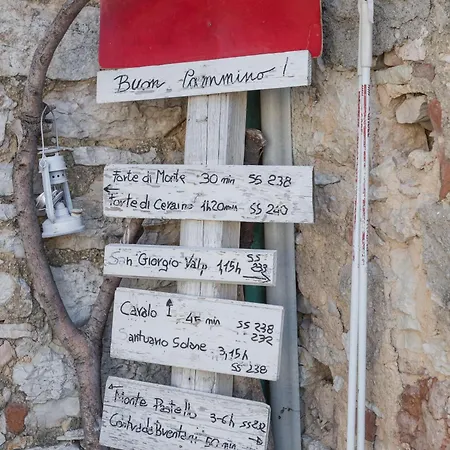 Buon Cammino!
Forte di Monte 30 min SS 238
Forte di Ceraino 1h20 min SS 240
San Giorgio Valp 1,15h SS
Cavalo 45 min SS 238
232
Santuario Solane 3,15h SS 238
Monte Pastello 3-6h SS 238
Contrada 50 min